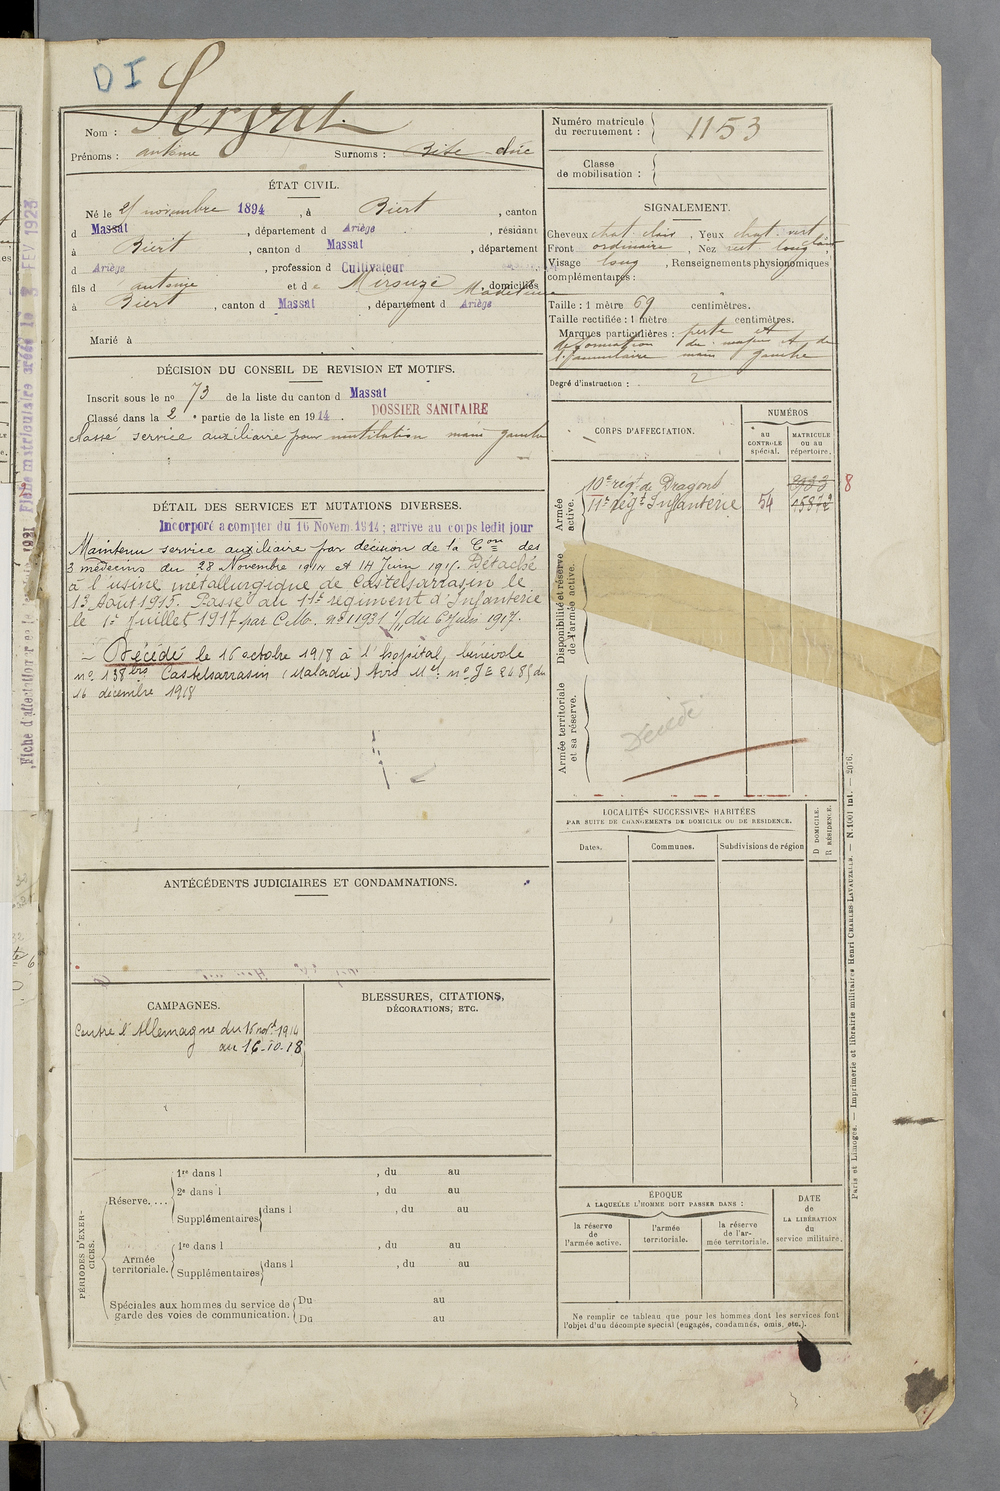 DI
Servat
Nom :
Prénoms : antoine Surnoms : Bite
Numéro matricule
du recrutement : 1153
Classe
de mobilisation :
ÉTAT CIVIL.
Né le 25 novembre 1894, à Biert, canton
d Massat, département d Ariège, résidant
à Biert, canton d Massat, département
d Ariège, profession d Cultivateur
fils d antoine et de Mirouze Madeleine, domiciliés
à Biert, canton d Massat, département d Ariège
Marié à
SIGNALEMENT.
Cheveux chat. clair, Yeux chat. vert clair
Front ordinaire, Nez long
Visage long, Renseignements physionomiques
complémentaires :
Taille : 1 mètre 69 centimètres.
Taille rectifiée : 1 mètre centimètres.
Marques particulières : perte et
déformation du majeur et de
l'annulaire main gauche
Degré d'instruction : 2
DÉCISION DU CONSEIL DE REVISION ET MOTIFS.
Inscrit sous le no 73 de la liste du canton d Massat
Classé dans la 2e partie de la liste en 1914.
DOSSIER SANITAIRE
classé service auxiliaire pour mutilation main gauche
CORPS D'AFFECTATION.
NUMÉROS
au
CONTROLE
spécial.
MATRICULE
ou au
répertoire.
Armée
active.
10e régt de Dragons
11e régt Infanterie 54 15872
8
Disponibilité et réserve
de l'armée active.
Armée territoriale
et sa réserve.
Décédé
DÉTAIL DES SERVICES ET MUTATIONS DIVERSES.
Incorporé à compter du 16 Novem. 1914 ; arrivé au corps ledit jour
Maintenu service auxiliaire par décision de la Con des
3 médecins du 28 Novembre 1914 et 14 Juin 1915. Détaché
à l'usine métallurgique de Castelsarrasin le
13 Août 1915. Passé au 11e régiment d'Infanterie
le 1er Juillet 1917 par C.M. no 11931 du 6 Juin 1917.
Décédé le 16 octobre 1918 à l'hopital bénévole
no 138 bis Castelsarrasin (Maladie) Avis Mel no du
16 décembre 1918
LOCALITÉS SUCCESSIVES HABITÉES
PAR SUITE DE CHANGEMENTS DE DOMICILE OU DE RÉSIDENCE.
Dates.
Communes.
Subdivisions de région
D DOMICILE.
R RÉSIDENCE.
ANTÉCÉDENTS JUDICIAIRES ET CONDAMNATIONS.
CAMPAGNES.
Contre l'Allemagne du 16 novt 1914
au 16-10-18
BLESSURES, CITATIONS,
DÉCORATIONS, ETC.
PÉRIODES D'EXER-
CICES.
Réserve....
1re dans l , du au
2e dans l , du au
Supplémentaires dans l , du au
Armée
territoriale.
1re dans l , du au
Supplémentaires dans l , du au
Spéciales aux hommes du service de
garde des voies de communication.
Du au
Du au
ÉPOQUE
A LAQUELLE L'HOMME DOIT PASSER DANS :
la réserve
de
l'armée active.
l'armée
territoriale.
la réserve
de l'ar-
mée territoriale.
DATE
de
LA LIBÉRATION
du
service militaire.
Ne remplir ce tableau que pour les hommes dont les services font
l'objet d'un décompte spécial (engagés, condamnés, omis, etc.).
Paris et Limoges. — Imprimerie et librairie militaires Henri CHARLES-LAVAUZELLE. — N. 1001 int. — 2076.